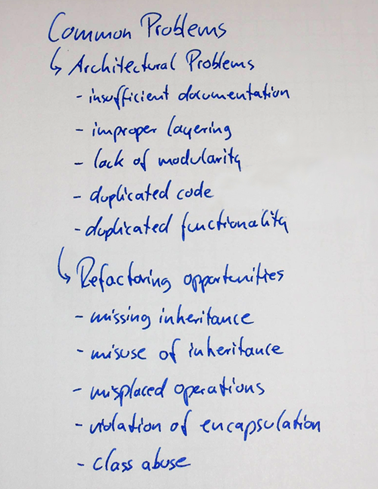 Common Problems
↳ Architectural Problems
- insufficient documentation
- improper layering
- lack of modularity
- duplicated code
- duplicated functionality
↳ Refactoring opportunities
- missing inheritance
- misuse of inheritance
- misplaced operations
- violation of encapsulation
- class abuse